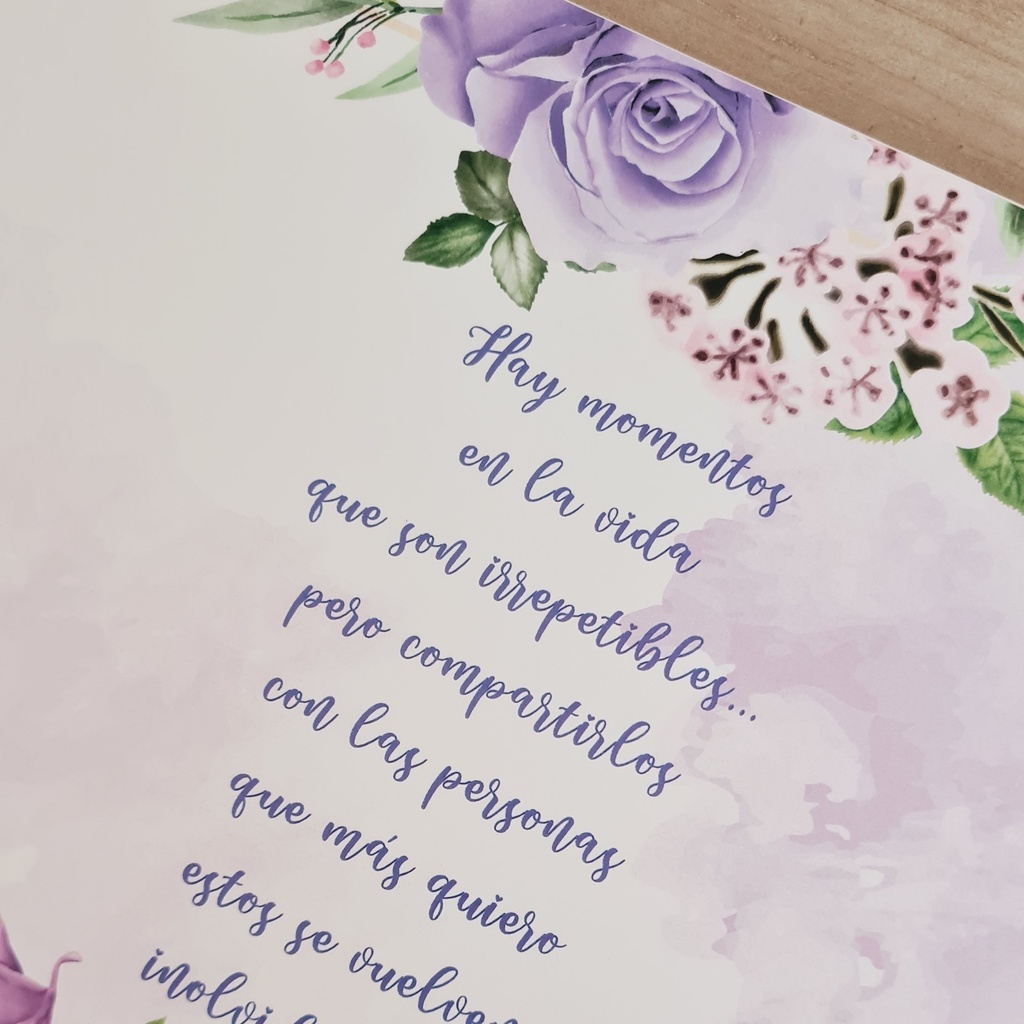 Hay momentos
en la vida
que son irrepetibles...
pero compartirlos
con las personas
que más quiero
estos se